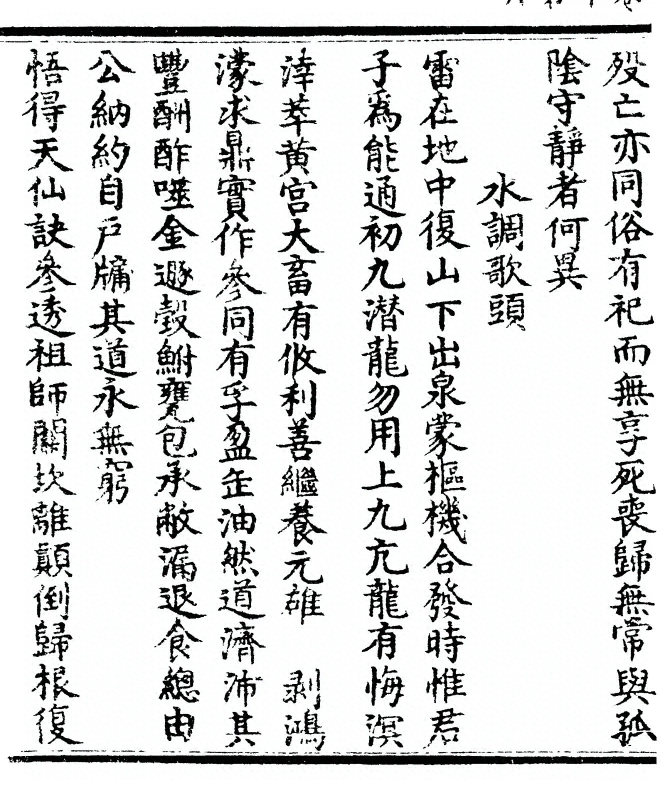 歿亡亦同俗有祀而無享死喪歸無常與孤
陰守靜者何異
水調歌頭
雷在地中復山下出泉蒙樞機合發時惟君
子爲能通初九潛龍勿用上九亢龍有悔溟
涬萃黃宮大畜有攸利善繼養元雄 剥鴻
濛求鼎實作參同有孚盈缶油然道濟沛其
豐酬酢噬金遯彀鮒甕包承敝漏退食總由
公納約自戶牖其道永無窮
悟得天仙訣參透祖師關坎離顛倒歸根復